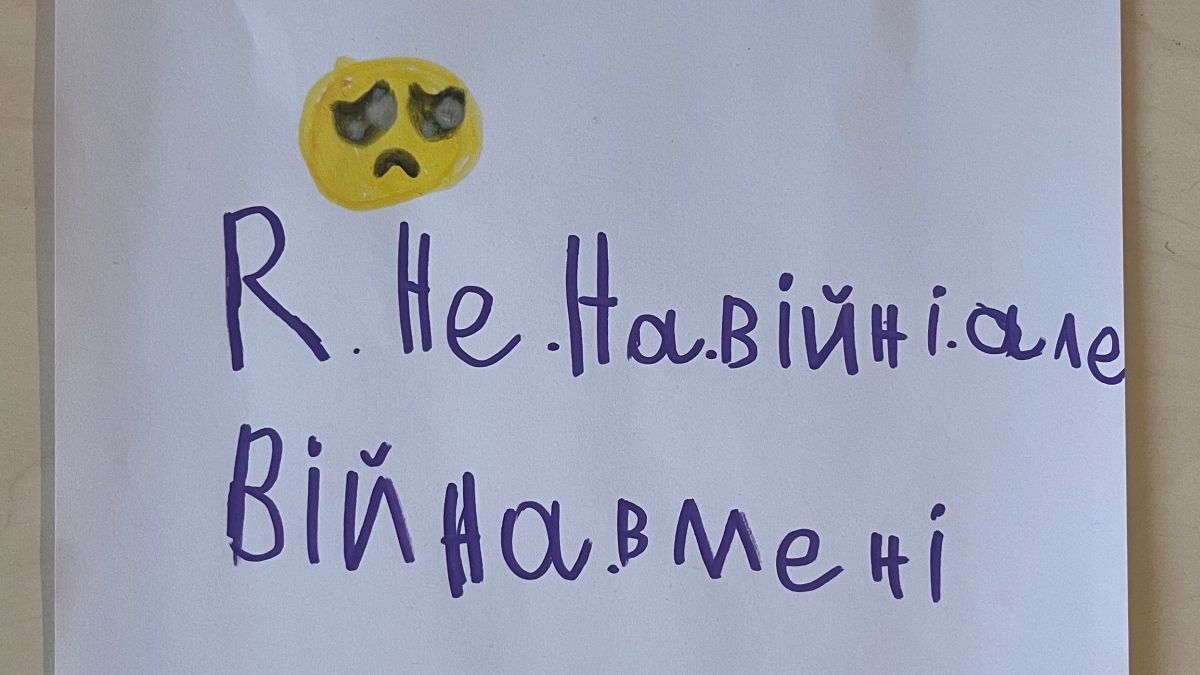 R. Не. На.війні.але
Війна.в мені